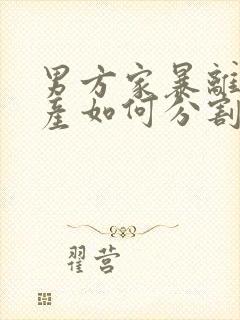 男方家暴離
產如何分割
翟营